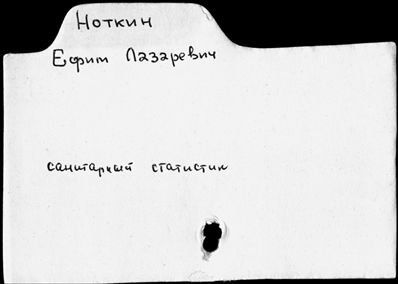 Ноткин
Ефим Лазаревич
санитарный статистик